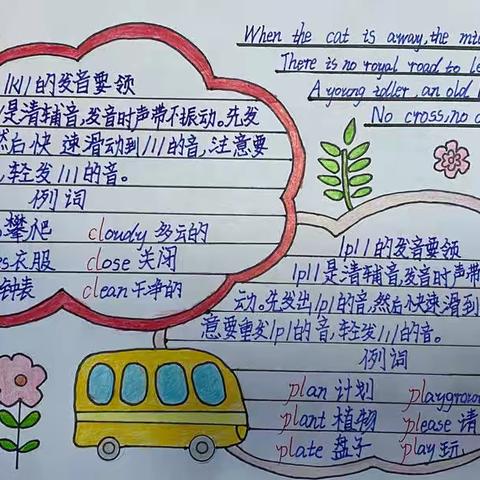 When the cat is away, the
There is no royal road to
A young idler, an old
No cross, no
/kl/的发音要领
是清辅音,发音时声带不振动。先发
然后快速滑动到/l/的音,注意要
,轻发/l/的音。
例词
攀爬 cloudy 多云的
es衣服 close 关闭
钟表 clean 干净的
/pl/的发音要领
/pl/是清辅音,发音时声带
动。先发出/p/的音,然后快速滑到
意要重发/p/的音,轻发/l/的音。
例词
plan 计划
plant 植物 please 请
plate 盘子 play 玩